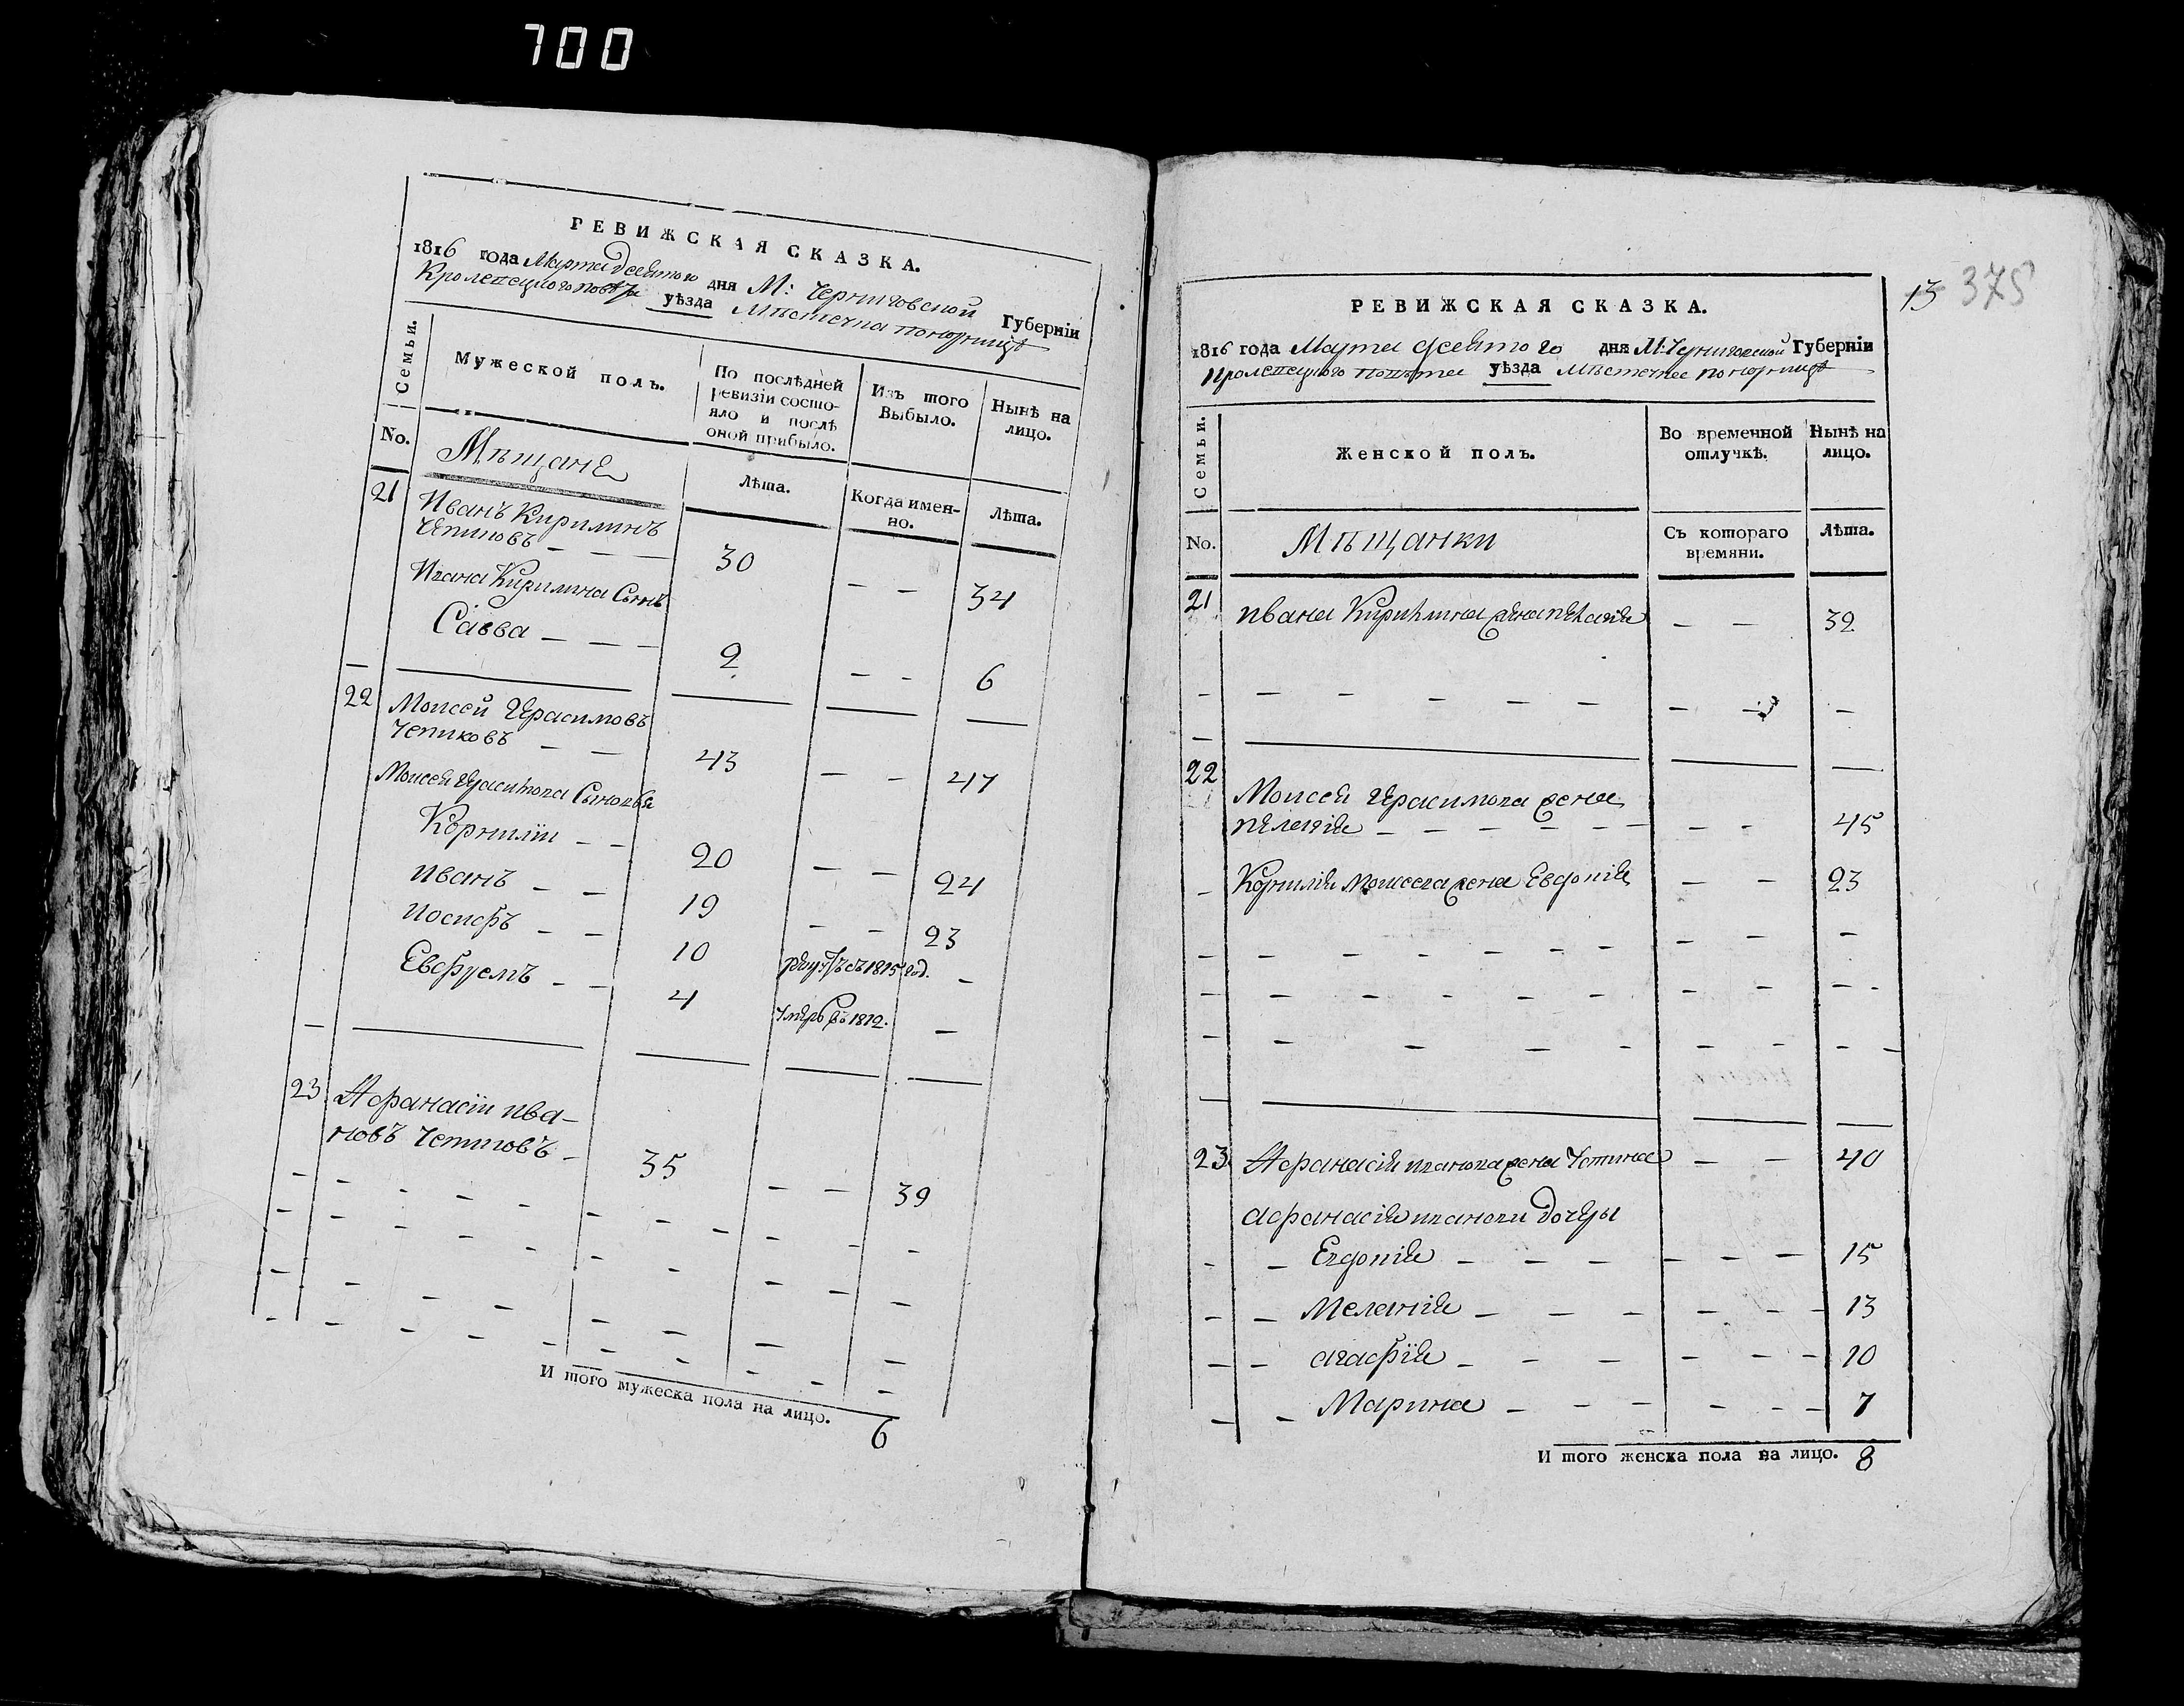 700
РЕВИЖСКАЯ СКАЗКА.
1816 года Марта десятого дня М: Черниговской Губерніи
Кролевецкого повѣта уѣзда Мѣстечка Понорницѣ
Семьи.
Мужеской полъ.
По послѣдней ревизіи состояло и послѣ оной прибыло.
Изъ того Выбыло.
Нынѣ на лицо.
No.
Мѣщане
Лѣта.
Когда именно.
Лѣта.
21
Иванъ Кирилинъ
30
34
Ивана Кирилина Сынъ
Савва
2
6
22
Моисей Герасимовъ
Чепиковъ
43
47
Моисея Герасимова Сыновья
Корнилій
20
24
иванъ
19
23
иосифъ
10
1815 год.
Евфремъ
4
умеръ въ 1812.
23
Афанасій ива-
новъ
35
39
И того мужеска пола на лицо.
6
13 375
РЕВИЖСКАЯ СКАЗКА.
1816 года Марта десятого дня М: Черниговской Губерніи
Кролевецкого повѣта уѣзда Мѣстечка Понорницѣ
Семьи.
Женской полъ.
Во временной отлучкѣ.
Нынѣ на лицо.
No.
Мѣщанки
Съ котораго времяни.
Лѣта.
21
ивана Кирилина жена пелагія
32
22
Моисея Герасимова жена
45
Корнилія Моисеева жена Евдокія
23
23
Афанасія иванова жена
40
афанасія иванова дочеры
Евдокія
15
Меланія
13
агафія
10
Марина
7
И того женска пола на лицо. 8